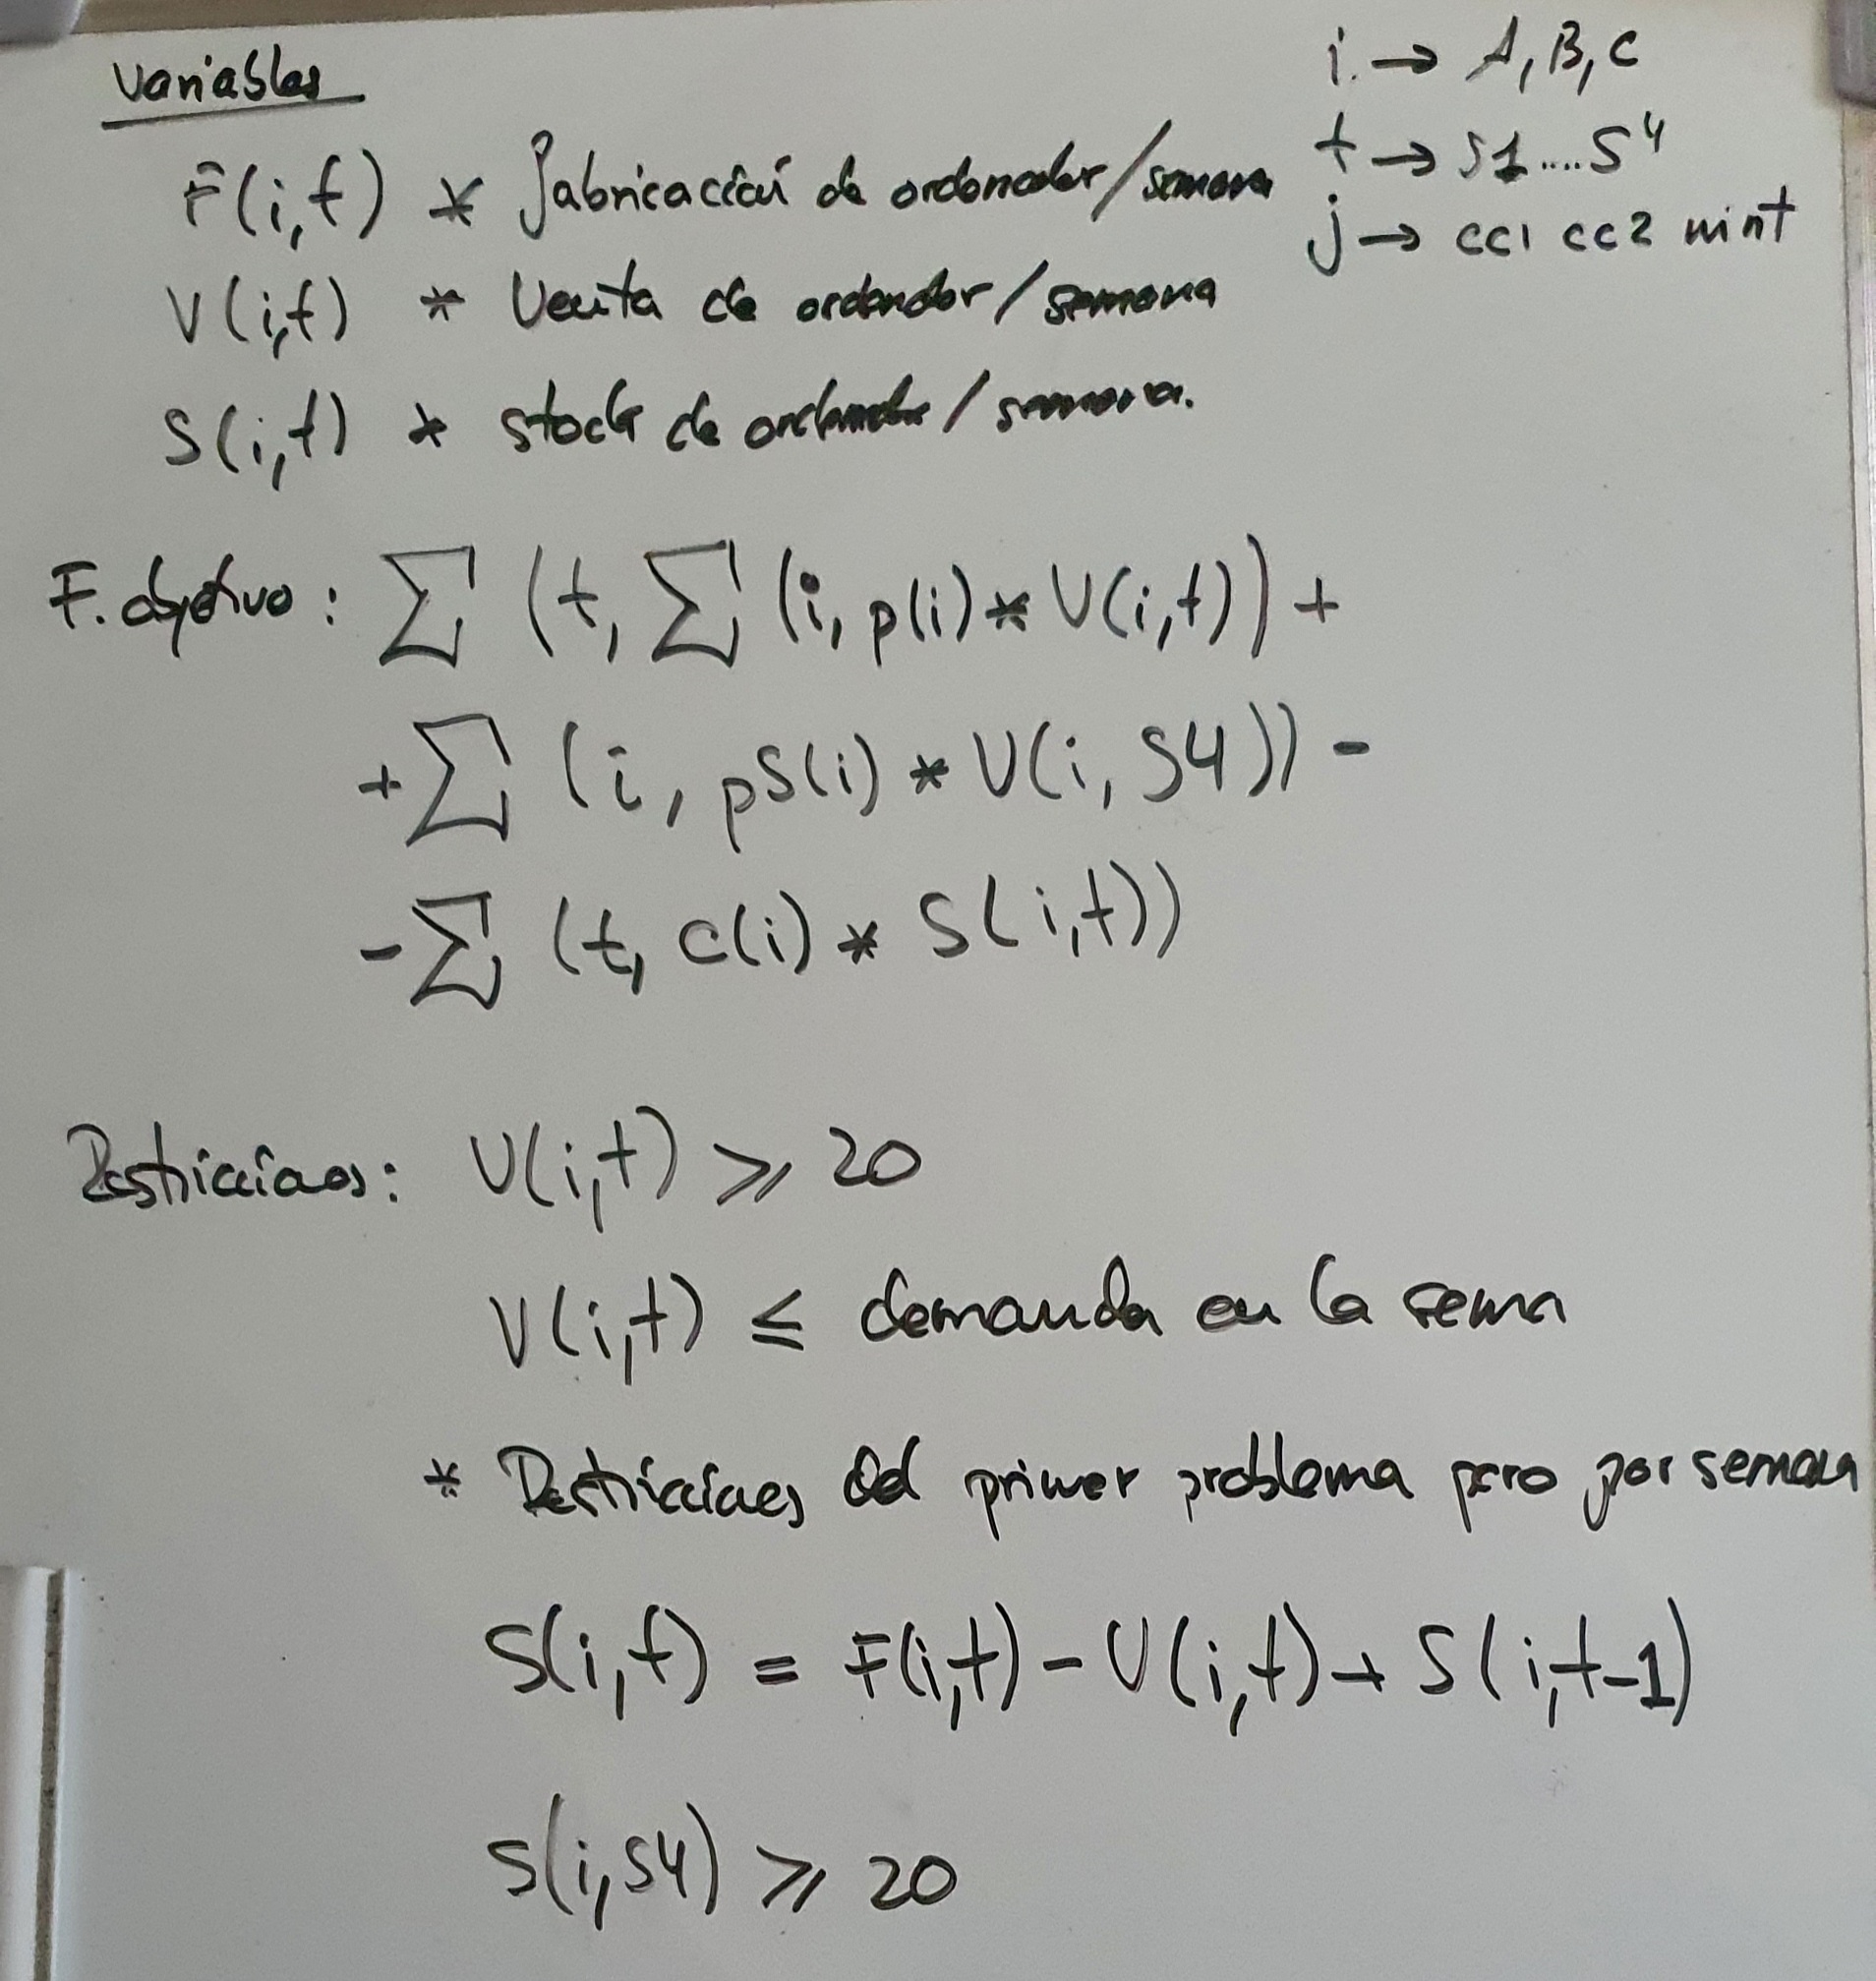 Variables
i → A, B, C
t → S1....S4
j → cc1 cc2 mint
F(i,t) * fabricación de ordenador/semana
V(i,t) * Venta de ordendor/semana
S(i,t) * stock de ordenador/semana.
F. objetivo: ∑ (t, ∑ (i, p(i)*V(i,t)) +
+∑ (i, pS(i) * V(i, S4)) -
-∑ (t, c(i) * S(i,t))
Restricciones: V(i,t) ⩾ 20
V(i,t) ≤ demanda en la sema
* Restricciones del primer problema pero por semana
S(i,t) = F(i,t) - V(i,t) + S(i,t-1)
S(i,S4) ⩾ 20